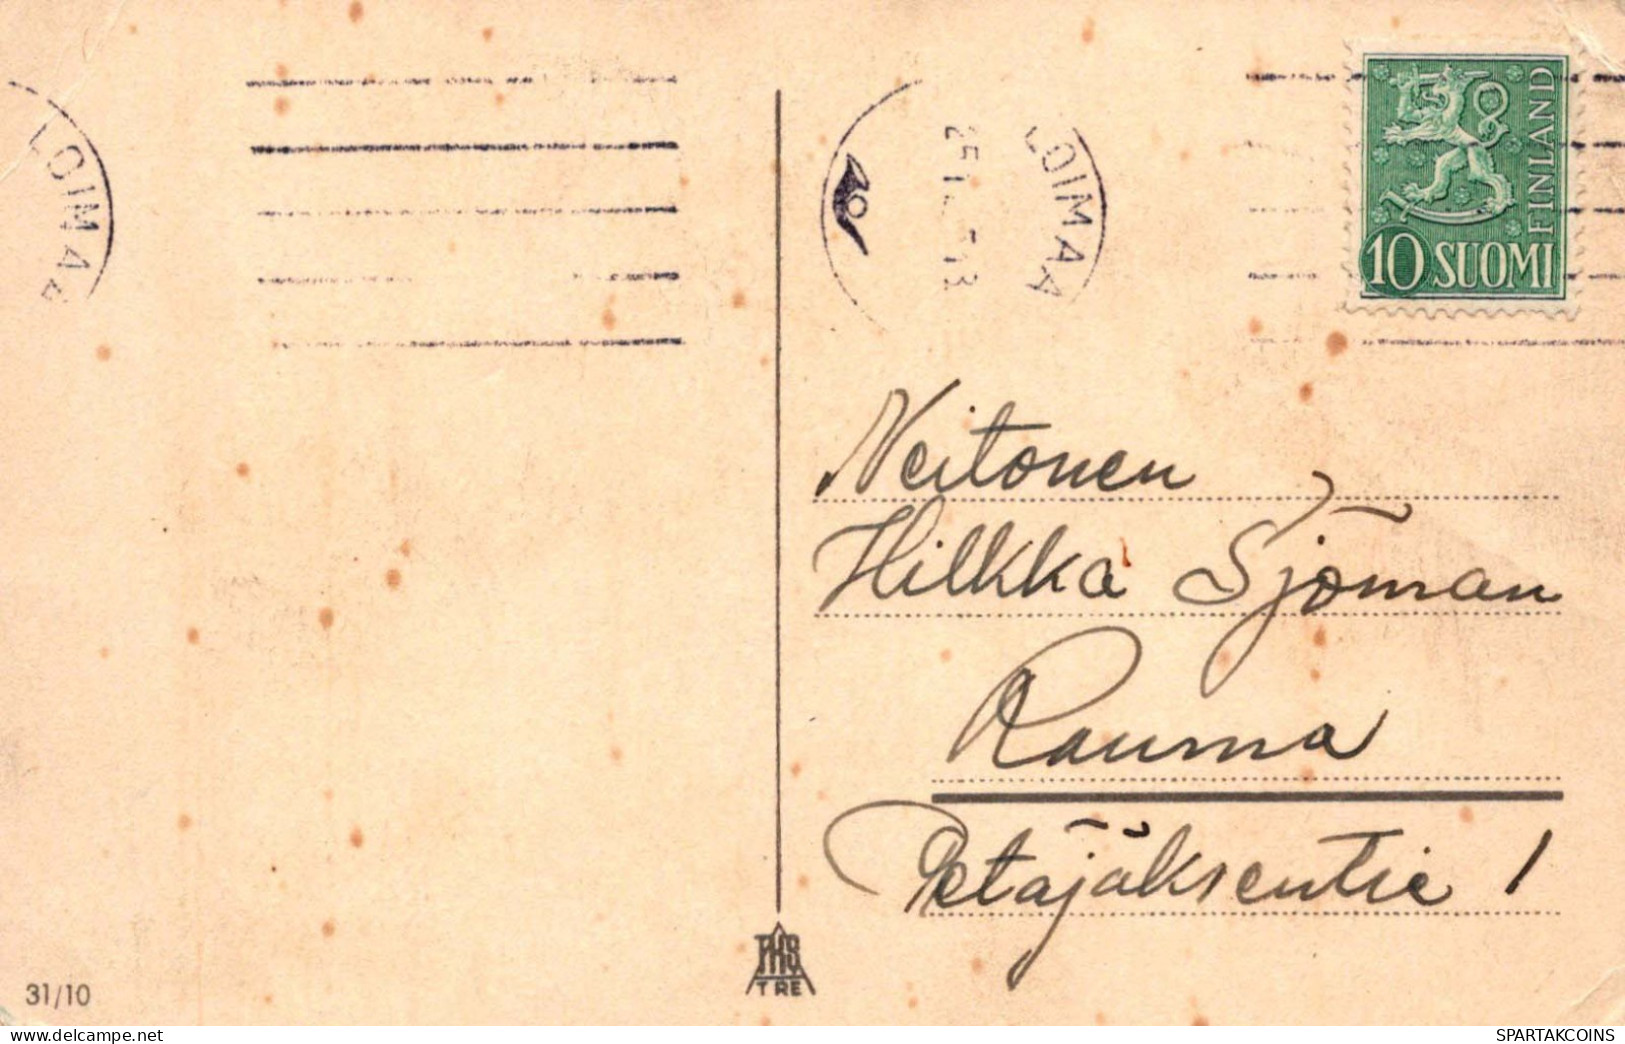 LOIMAA
LOIMAA
10 SUOMI
FINLAND
Neitonen
Hilkka Sjöman
Rauma
Petäjäksentie 1
PKS
TRE
31/10
delcampe.net
SPARTAKCOINS